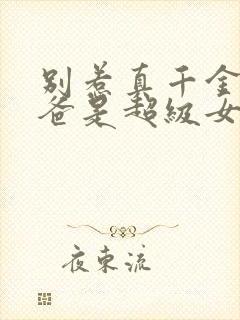 别惹真千金
爸是超级女
夜东流